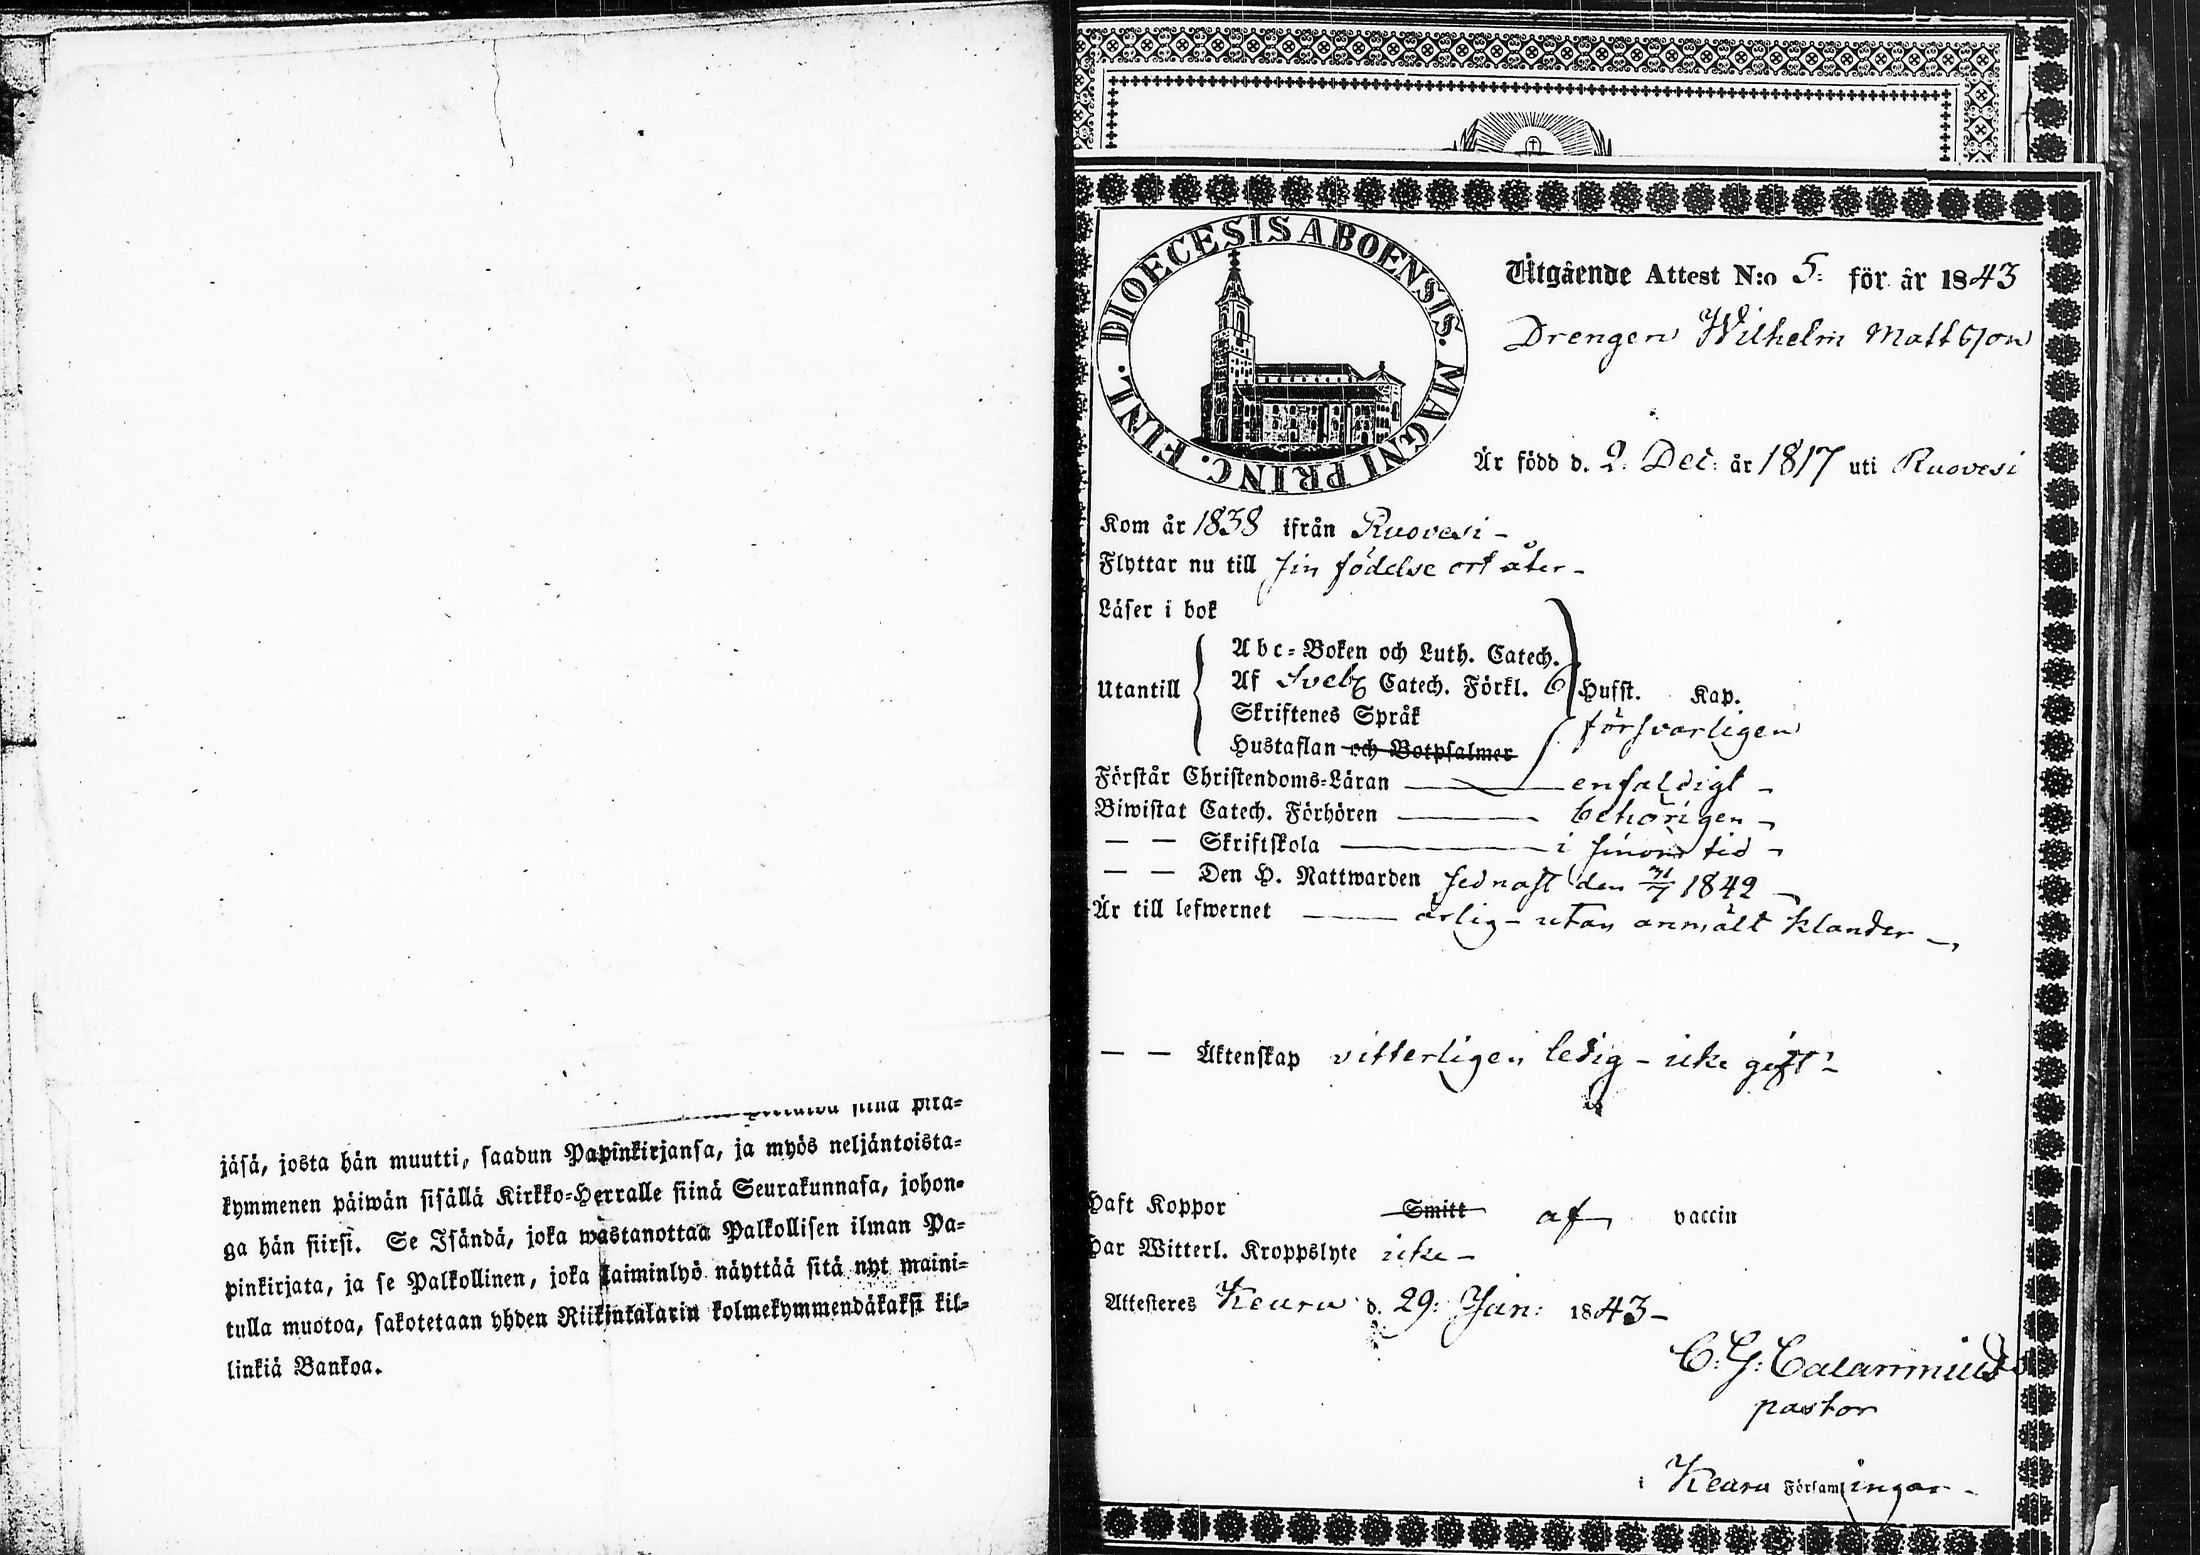 jäsä, josta hän muutti, saadun Papinkirjansa, ja myös neljäntoista-
kymmenen päiwän sisällä Kirkko-Herralle siinä Seurakunnasa, johon-
ga hän siirsi. Se Isändä, joka wastanottaa Palkollisen ilman Pa-
pinkirjata, ja se Palkollinen, joka laiminlyö näyttää sitä nyt maini-
tulla muotoa, sakotetaan yhden Riikinkalarin kolmekymmendäkaksi kil-
linkiä Bankoa.
DIOECESIS ABOENSIS. MAGNI PRINC. FINL.
Utgående Attest N:o 5: för år 1843
Drengen Wilhelm Mattsson
Är född d. 2: Dec: år 1817 uti Ruovesi
Kom år 1838 ifrån Ruovesi -
Flyttar nu till sin födelse ort åter -
Läser i bok
Utantill
Abc-Boken och Luth. Catech.
Af Sveb Catech. Förkl. 6 Hufst. Kap.
Skriftenes Språk
försvarligen
Hustaflan och Botpsalmer
Förstår Christendoms-Läran enfaldigt -
Biwistat Catech. Förhören behörigen -
— — Skriftskola i sinom tid -
— — Den H. Nattwarden sednast den 31/7 1842
Är till lefwernet ärlig - utan anmält klander -
— — Äktenskap vitterligen ledig - icke gift -
Haft Koppor Smitt af vaccin
Har Witterl. Kroppslyte icke -
Attesteres Keuru d. 29: Jan: 1843 -
C: G: Calamnius
pastor
i Keuru Församlingar -